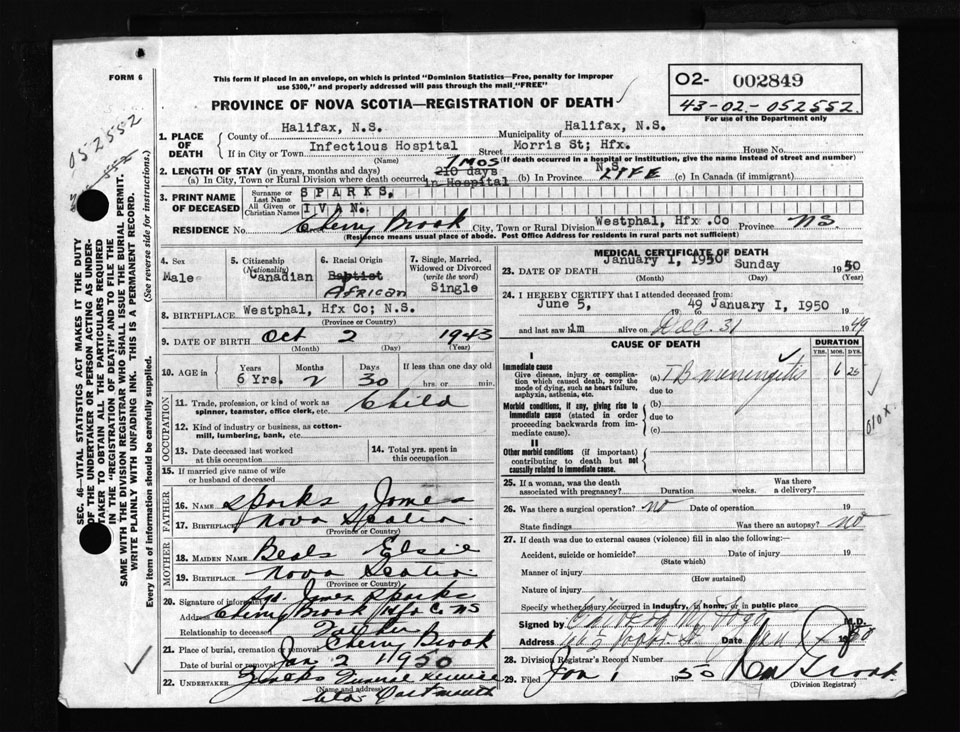 FORM 6
This form if placed in an envelope, on which is printed "Dominion Statistics—Free, penalty for improper
use $300," and properly addressed will pass through the mail "FREE"
PROVINCE OF NOVA SCOTIA—REGISTRATION OF DEATH
O2- 002849
43-02-052552
For use of the Department only
052552
1. PLACE OF DEATH
County of Halifax, N.S. Municipality of Halifax, N.S.
If in City or Town Infectious Hospital Street Morris St; Hfx. House No.
(Name) (If death occurred in a hospital or institution, give the name instead of street and number)
2. LENGTH OF STAY (in years, months and days)
(a) In City, Town or Rural Division where death occurred 7 mos 210 days in Hospital (b) In Province N.S. LIFE (c) In Canada (if immigrant)
3. PRINT NAME OF DECEASED
Surname or Last Name SPARKS,
All Given or Christian Names IVAN.
RESIDENCE No. Street Cherry Brook City, Town or Rural Division Westphal, Hfx .Co Province NS
(Residence means usual place of abode. Post Office Address for residents in rural parts not sufficient)
4. Sex Male
5. Citizenship (Nationality) Canadian
6. Racial Origin Baptist African
7. Single, Married, Widowed or Divorced (write the word) Single
8. BIRTHPLACE Westphal, Hfx Co; N.S.
(Province or Country)
9. DATE OF BIRTH Oct 2 1943
(Month) (Day) (Year)
10. AGE in Years Months Days If less than one day old
6 Yrs. 2 30 hrs. or min.
OCCUPATION
11. Trade, profession, or kind of work as spinner, teamster, office clerk, etc. Child
12. Kind of industry or business, as cotton-mill, lumbering, bank, etc.
13. Date deceased last worked at this occupation
14. Total yrs. spent in this occupation
15. If married give name of wife or husband of deceased
FATHER
16. NAME Sparks James
17. BIRTHPLACE Nova Scotia
(Province or Country)
MOTHER
18. MAIDEN NAME Beals Elsie
19. BIRTHPLACE Nova Scotia
(Province or Country)
20. Signature of informant Sgd. James Sparks
Address Cherry Brook Hfx C. NS
Relationship to deceased Father
21. Place of burial, cremation or removal Cherry Brook
Date of burial or removal Jan 2 1950
22. UNDERTAKER Funeral Service
(Name and address)
Dartmouth
MEDICAL CERTIFICATE OF DEATH
23. DATE OF DEATH January 1, 1950 Sunday 1950
(Month) (Day)
24. I HEREBY CERTIFY that I attended deceased from:
June 5, 19 49 January 1, 1950 19
and last saw him alive on Dec. 31 1949
CAUSE OF DEATH DURATION
YRS. MOS. DYS.
I
Immediate cause
Give disease, injury or complication which caused death, NOT the mode of dying, such as heart failure, asphyxia, asthenia, etc.
(a) TB meningitis 6 25
due to
Morbid conditions, if any, giving rise to immediate cause (stated in order proceeding backwards from immediate cause).
(b)
due to
(c)
II
Other morbid conditions (if important) contributing to death but not causally related to immediate cause.
010 x
25. If a woman, was the death associated with pregnancy? Duration weeks. Was there a delivery?
26. Was there a surgical operation? no Date of operation 19
State findings Was there an autopsy? no
27. If death was due to external causes (violence) fill in also the following:
Accident, suicide or homicide? Date of injury 19
(State which)
Manner of injury
(How sustained)
Nature of injury
Specify whether injury occurred in industry, in home, or in public place
Signed by M.D.
Address Date Jan 1950
28. Division Registrar's Record Number
29. Filed Jan 1 1950
(Division Registrar)
SEC. 46—VITAL STATISTICS ACT MAKES IT THE DUTY
OF THE UNDERTAKER OR PERSON ACTING AS UNDER-
TAKER TO OBTAIN ALL THE PARTICULARS REQUIRED
IN THE "REGISTRATION OF DEATH" AND TO FILE THE
SAME WITH THE DIVISION REGISTRAR WHO SHALL ISSUE THE BURIAL PERMIT.
WRITE PLAINLY WITH UNFADING INK. THIS IS A PERMANENT RECORD.
Every item of information should be carefully supplied. (See reverse side for instructions.)